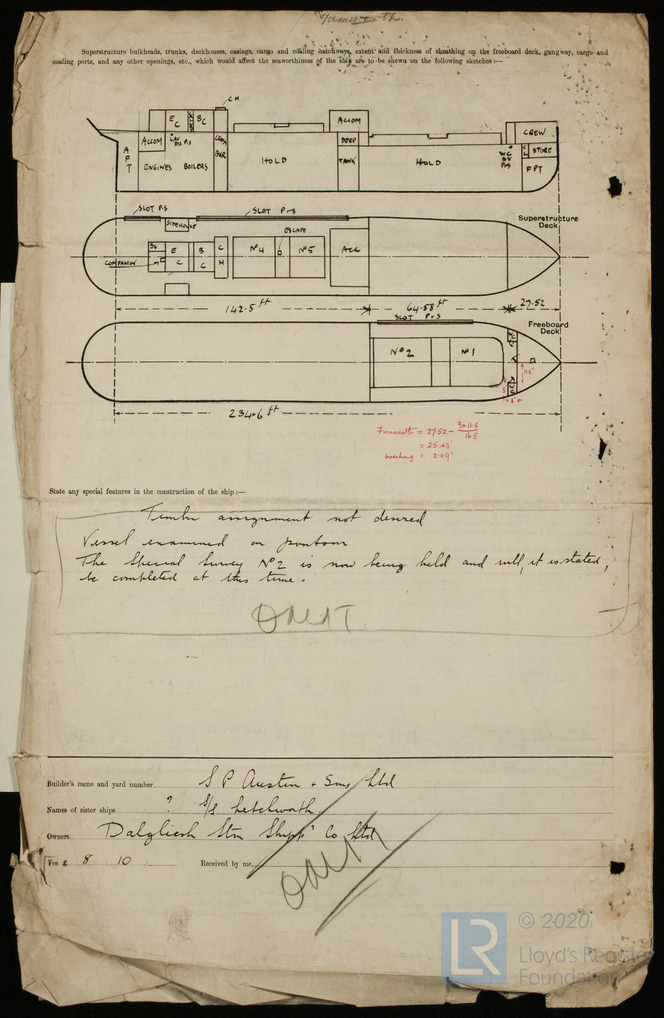 Superstructure bulkheads, trunks, deckhouses, casings, cargo and coaling hatchways, extent and thickness of sheathing on the freeboard deck, gangway, cargo and
coaling ports, and any other openings, etc., which would affect the seaworthiness of the ship are to be shewn on the following sketches :—
CH
E C B C ACCOM
CREW
ACCOM DEEP STORE
A P T ENGINES BOILERS HOLD TANK HOLD FPT
SLOT P.S SLOT P+S
SIDEHOUSE ESCAPE
Superstructure
Deck
E B C Nº4 Nº5 Acc
COMPANION C C H
142.5 ft 64.58 ft 27.52
SLOT P+S
Freeboard
Deck
Nº2 Nº1
11.5'
234.6 ft
Forecastle = 27.52 - 3x11.5/16.5
= 25.43'
Overhang = 2.09'
State any special features in the construction of the ship :—
Timber assignment not desired
Vessel examined on pontoon
The Special Survey Nº2 is now being held and will, it is stated,
be completed at this time.
OMIT
Builder's name and yard number S P Austin & Sons Ltd
Names of sister ships ? S/S Letchworth
Owners Dalgliesh Stm Shipp Co Ltd
Fee £ 8 . 10 Received by me
OMIT
LR © 2020
Lloyd's Register
Foundation